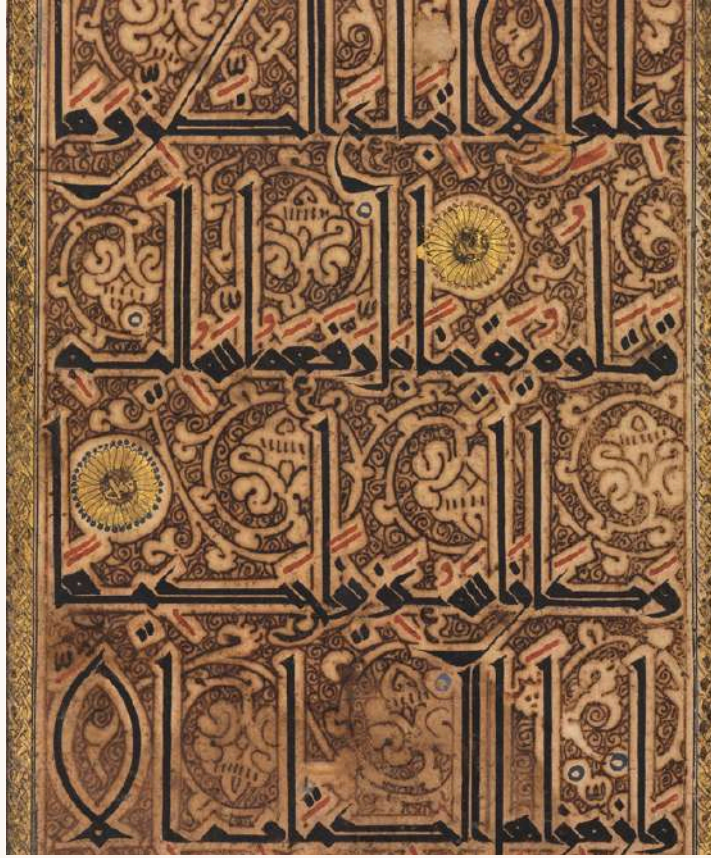 عِلْمٍ إِلَّا اتِّبَاعَ الظَّنِّ وَمَا
قَتَلُوهُ يَقِينًا بَلْ رَّفَعَهُ اللَّهُ إِلَيْهِ
وَكَانَ اللَّهُ عَزِيزًا حَكِيمًا
وَإِنْ مِنْ أَهْلِ الْكِتَابِ إِلَّا